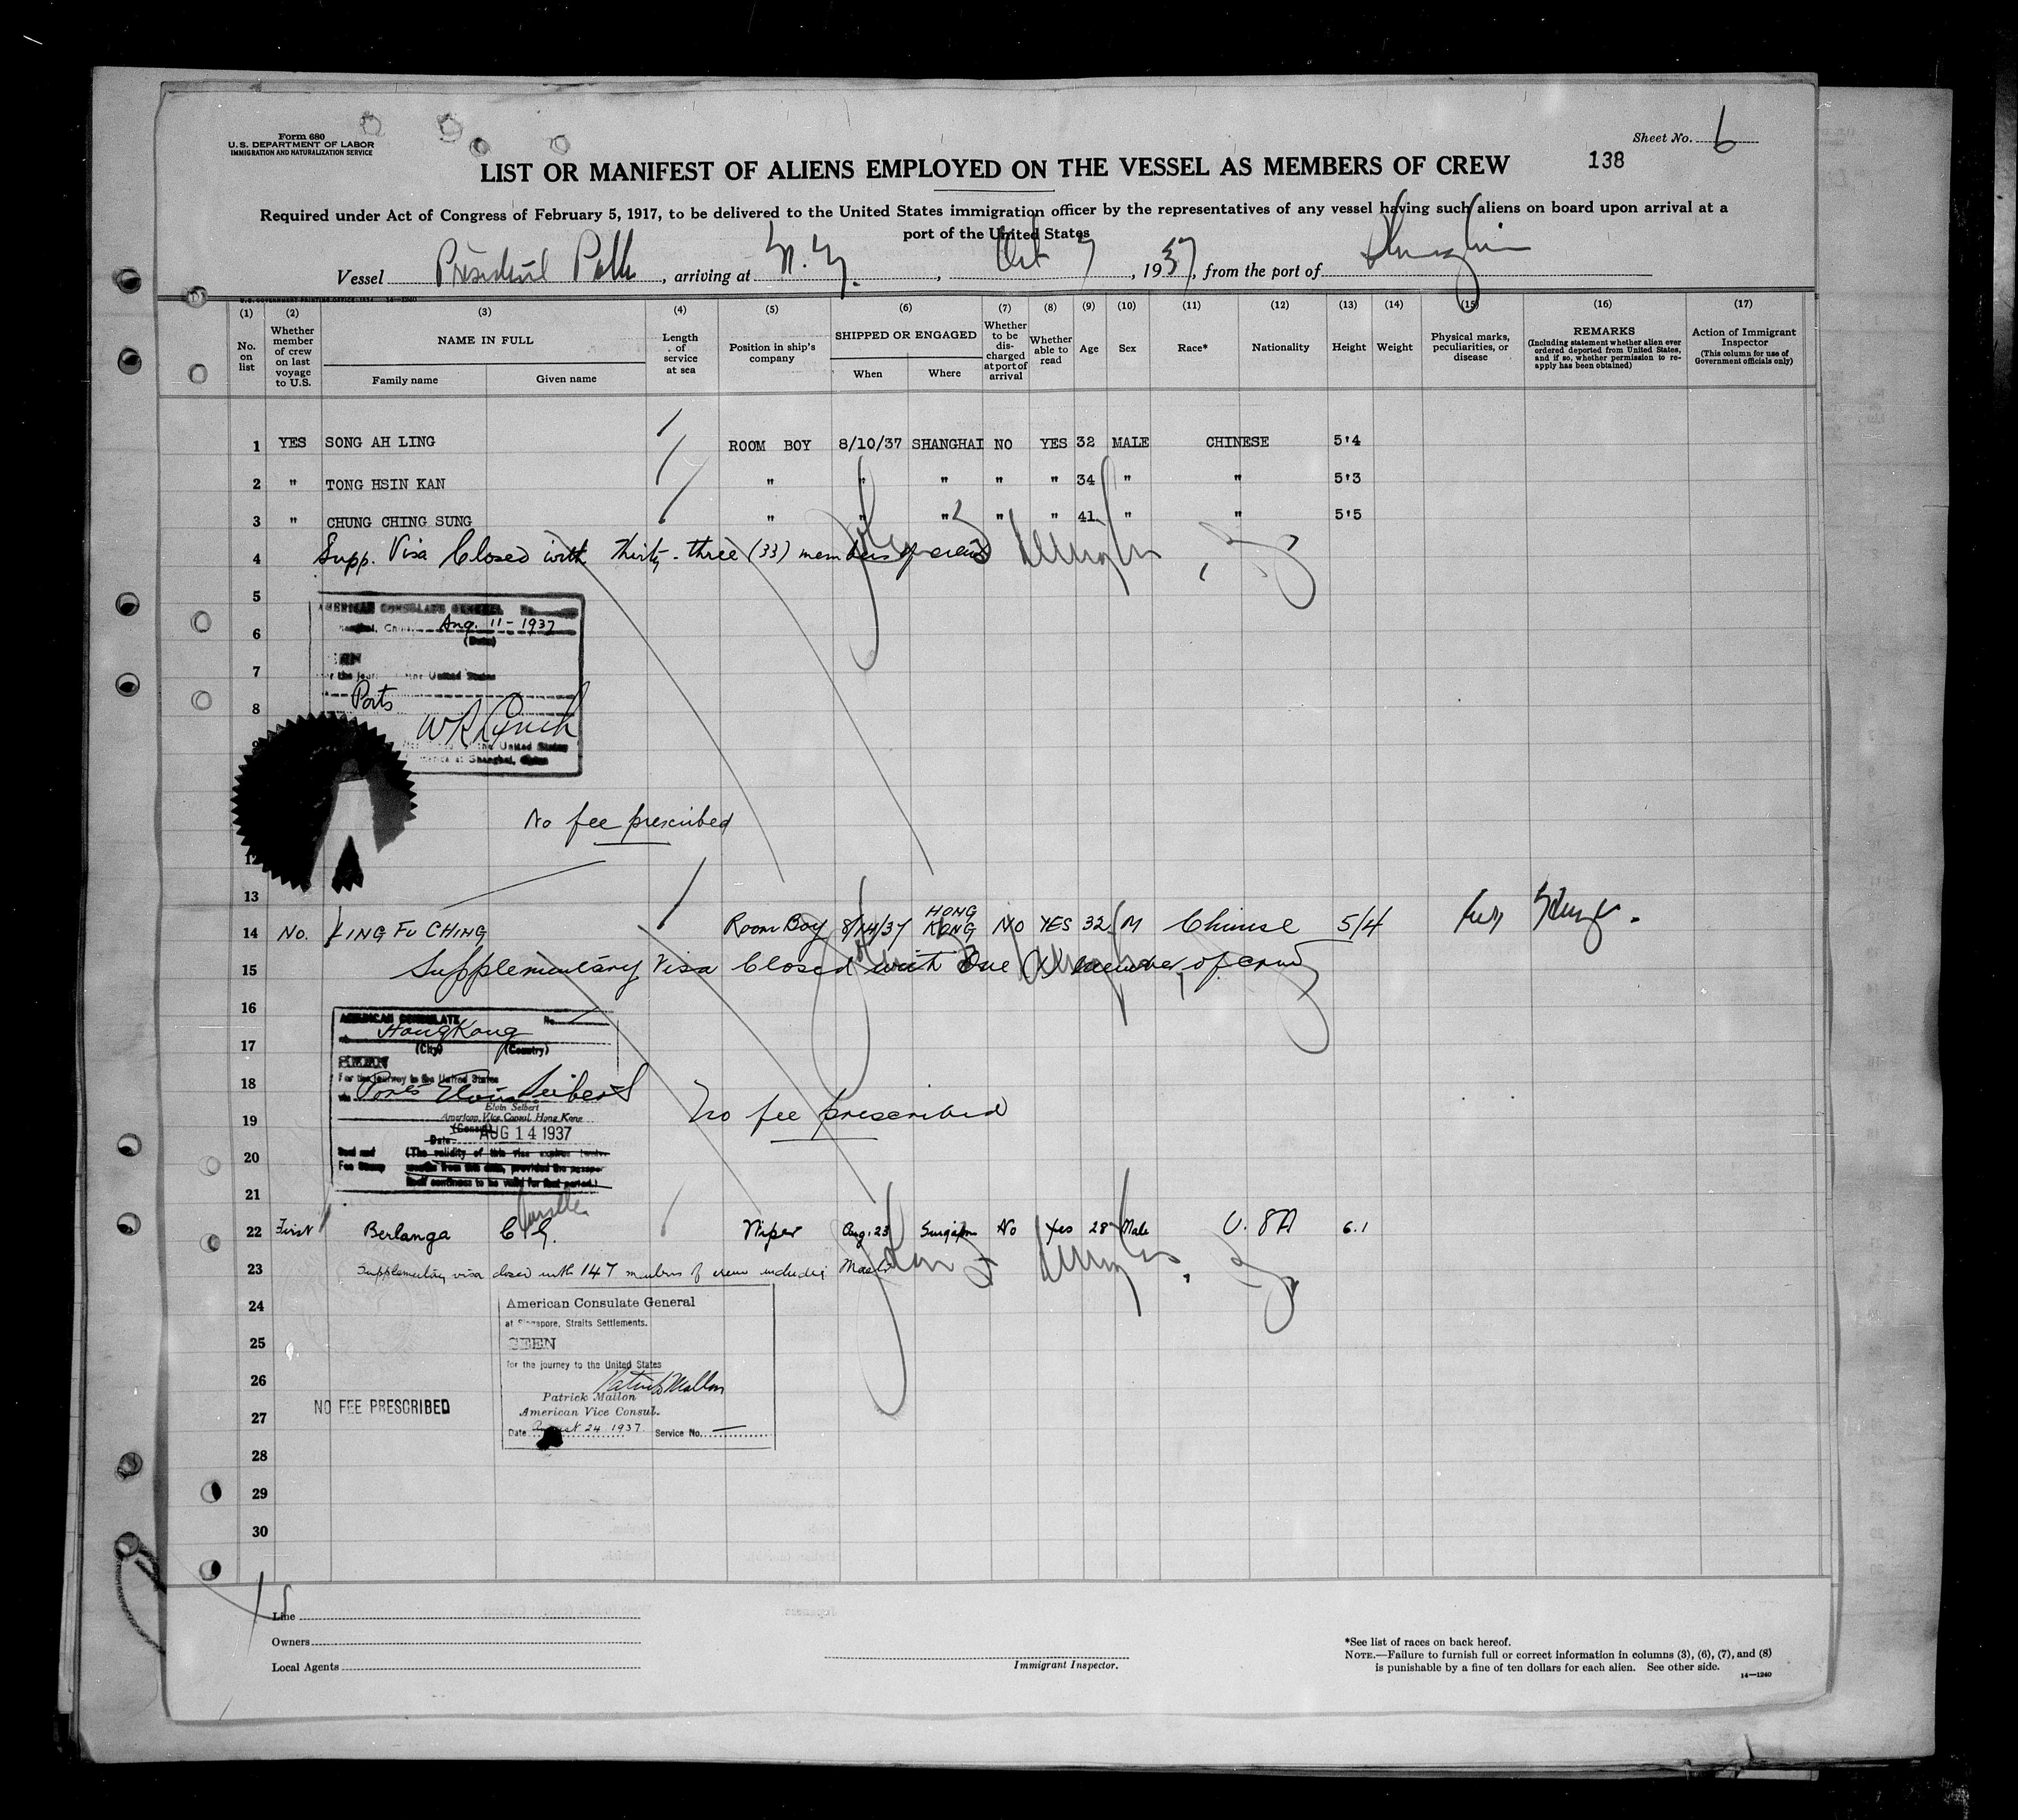 Form 680
U.S. DEPARTMENT OF LABOR
IMMIGRATION AND NATURALIZATION SERVICE
Sheet No. 6
138
LIST OR MANIFEST OF ALIENS EMPLOYED ON THE VESSEL AS MEMBERS OF CREW
Required under Act of Congress of February 5, 1917, to be delivered to the United States immigration officer by the representatives of any vessel having such aliens on board upon arrival at a
port of the United States
Vessel President Polk, arriving at N.Y., Oct 7, 1937, from the port of Shanghai
(1) (2) (3) (4) (5) (6) (7) (8) (9) (10) (11) (12) (13) (14) (15) (16) (17)
No. on list
Whether member of crew on last voyage to U.S.
NAME IN FULL
Family name
Given name
Length of service at sea
Position in ship's company
SHIPPED OR ENGAGED
When
Where
Whether to be discharged at port of arrival
Whether able to read
Age
Sex
Race*
Nationality
Height
Weight
Physical marks, peculiarities, or disease
REMARKS
(Including statement whether alien ever ordered deported from United States, and if so, whether permission to re-apply has been obtained)
Action of Immigrant Inspector
(This column for use of Government officials only)
1 YES SONG AH LING ROOM BOY 8/10/37 SHANGHAI NO YES 32 MALE CHINESE 5'4
2 " TONG HSIN KAN " " " " " 34 " " 5'3
3 " CHUNG CHING SUNG " " " " " 41 " " 5'5
4 Supp. Visa Closed with Thirty-three (33) members of crew
5
AMERICAN CONSULATE GENERAL No.
6 Aug. 11-1937
(Date)
7
the United States
Ports
8
W R Lynch
the United States
at Shanghai,
No fee prescribed
12
13
14 No. KING FU CHING Room Boy 8/14/37 HONG KONG NO YES 32 M Chinese 5/4
15 Supplementary Visa Closed with One (1) member of crew
16 AMERICAN CONSULATE No.
HongKong
17 (City) (Country)
SEEN
18 For the journey to the United States
via Ports Elvin Seibert
Elvin Seibert
19 American Vice Consul, Hong Kong
No fee prescribed
Date AUG 14 1937
20 Seal and Fee Stamp (The validity of this visa expires twelve months from this date, provided the passport itself continues to be valid for that period.)
21
22 First Berlanga C G. Wiper Aug. 23 Singapore No Yes 28 Male U.S.A 6.1
23 Supplementary visa closed with 147 members of crew including Master
24 American Consulate General
at Singapore, Straits Settlements.
25 SEEN
for the journey to the United States
26 Patrick Mallon
Patrick Mallon
NO FEE PRESCRIBED
27 American Vice Consul.
Date August 24 1937 Service No.
28
29
30
Line
Owners
Local Agents
Immigrant Inspector.
*See list of races on back hereof.
NOTE.—Failure to furnish full or correct information in columns (3), (6), (7), and (8)
is punishable by a fine of ten dollars for each alien. See other side.
14—1240